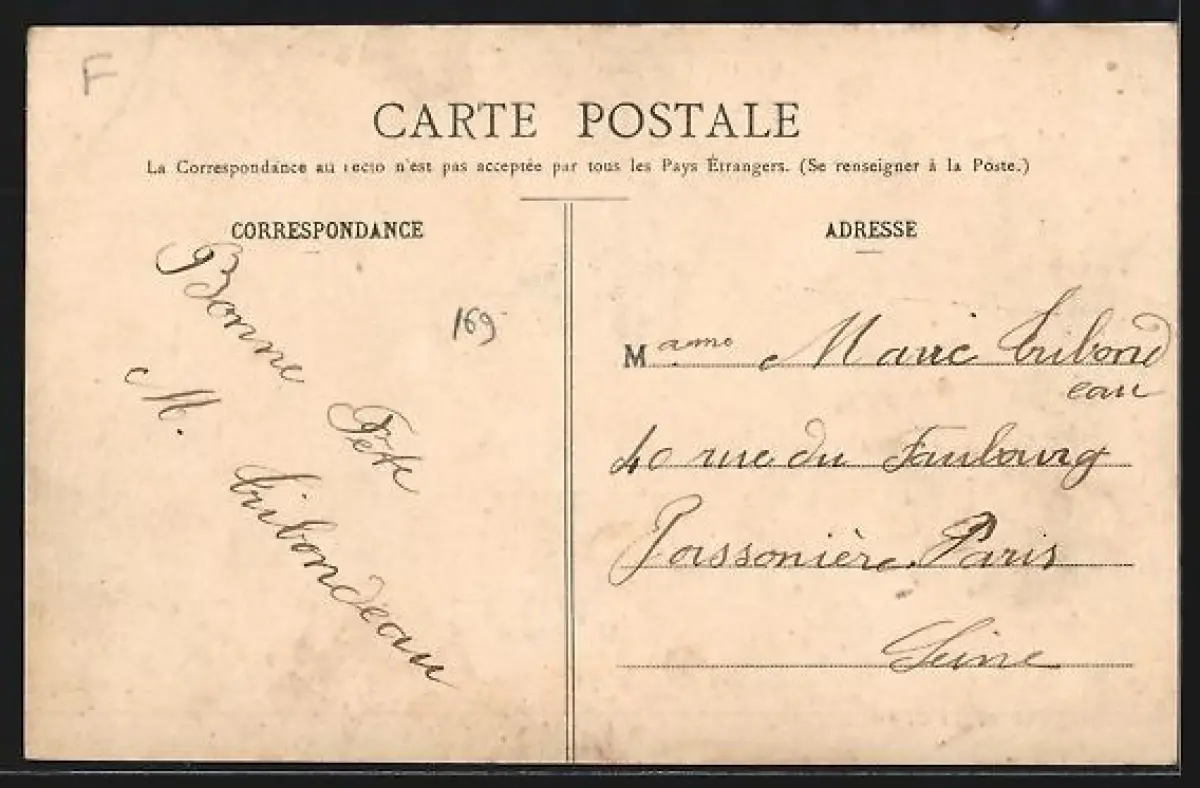 F
CARTE POSTALE
La Correspondance au recto n'est pas acceptée par tous les Pays Étrangers. (Se renseigner à la Poste.)
CORRESPONDANCE
Bonne Fête
M. Tribondeau
169
ADRESSE
Mame Marie Tribond
eau
40 rue du Faubourg
Poissonière Paris
Seine